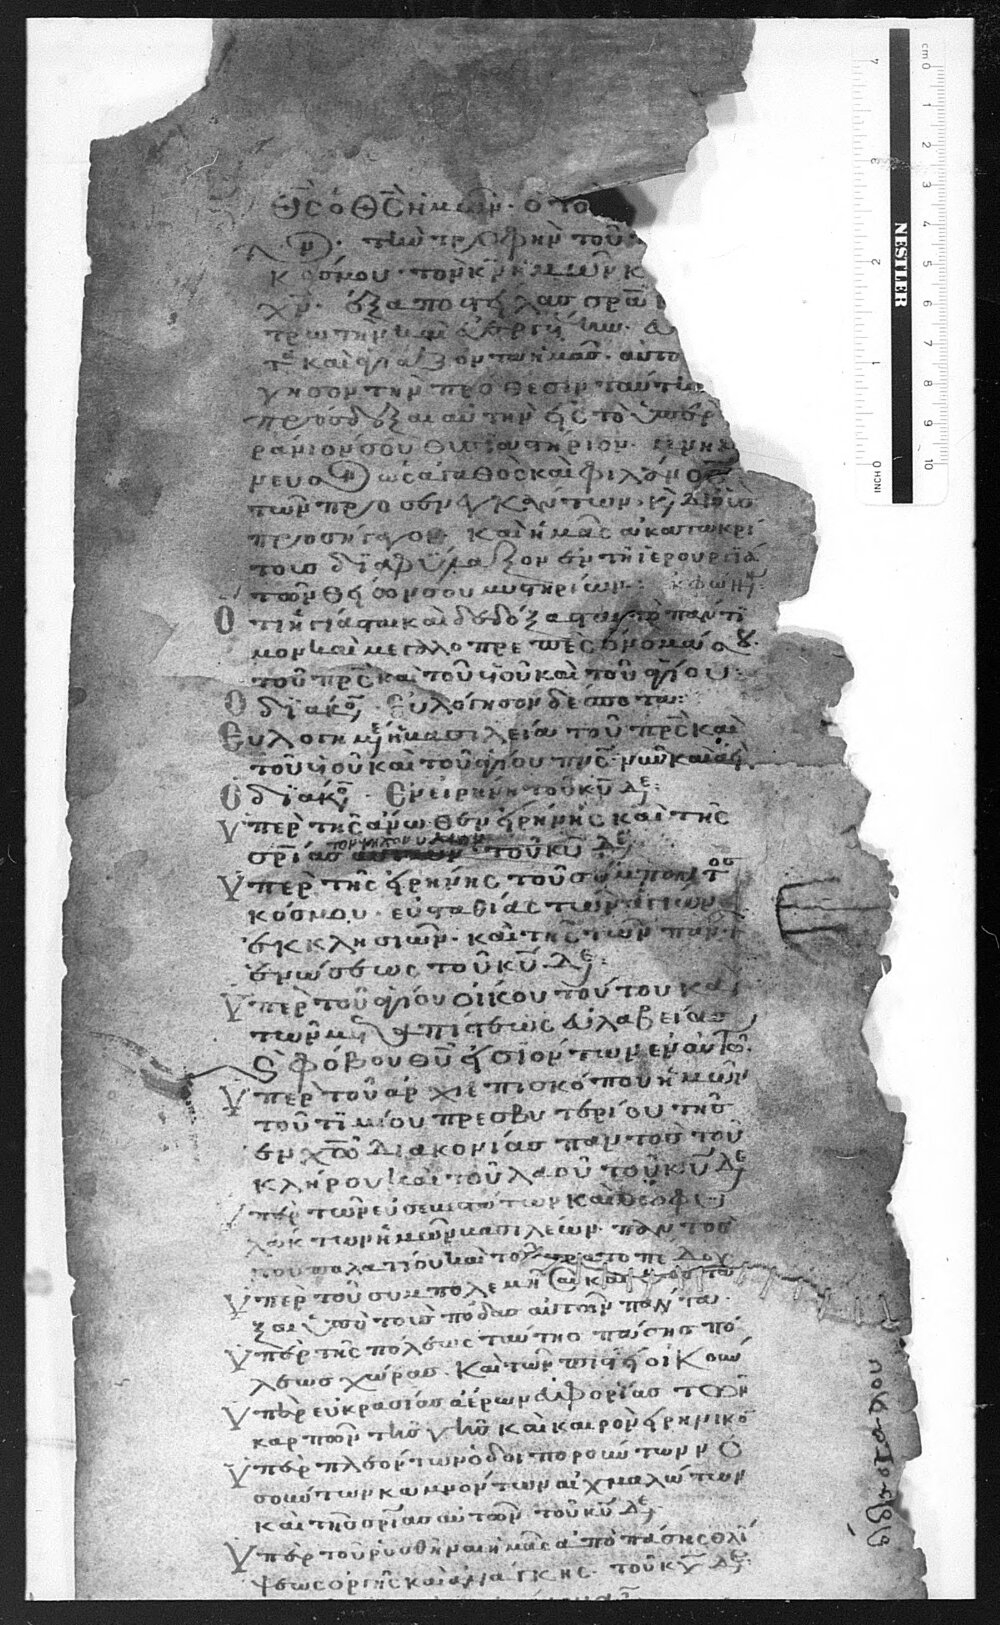 Θ̅Σ̅ ὁ Θ̅Σ̅ ἡμῶν· ὁ το
τὴν τροφὴν τοῦ
κόσμου· τὸν κ̅ν̅ ἡμῶν κ
χ̅ν̅· ἐξαποστείλας σ̅ρ̅α̅
τρωτὴν καὶ εὐεργέτην·
καὶ ἁγιάζοντα ἡμᾶς· αὐτὸ
γησον τὴν πρόθεσιν ταύτην
πρόσδεξαι αὐτὴν εἰς τὸ ὑπερ
ράνιόν σου θυσιαστήριον· μνημ
νευσον ὡς ἀγαθὸς καὶ φιλάνος
τῶν προσενεγκόντων, κ δι οὓς
προσήγαγον· καὶ ἡμᾶς ἀκατακρί
τους διαφύλαξον ἐν τῇ ἱερουργίᾳ
τῶν θείων σου μυστηρίων: ἐκφων
Ὅτι ἡγίασται καὶ δεδόξασται τὸ πάντι
μον καὶ μεγαλοπρεπὲς ὄνομά σου
τοῦ π̅ρ̅ς̅ καὶ τοῦ υἱοῦ καὶ τοῦ ἁγίου:
Ὁ διάκο· Εὐλόγησον δέσποτα:
Εὐλογημένη ἡ βασιλεία τοῦ π̅ρ̅ς̅ καὶ
τοῦ υἱοῦ καὶ τοῦ ἁγίου π̅ν̅ς̅· νῦν καὶ ἀεὶ
Ὁ διάκο· Ἐν εἰρήνῃ τοῦ κ̅υ̅ δε:
Ὑπὲρ τῆς ἄνωθεν εἰρήνης καὶ τῆς
σ̅ρ̅ίας τῶν ψυχῶν ἡμῶν τοῦ κ̅υ̅ δε
Ὑπὲρ τῆς εἰρήνης τοῦ σύμπαντο
κόσμου· εὐσταθίας τῶν ἁγίων
ἐκκλησιῶν· καὶ τῆς τῶν πάντ
ἑνώσεως τοῦ κ̅υ̅ δε:
Ὑπὲρ τοῦ ἁγίου οἴκου τούτου καὶ
τῶν με πίστεως εὐλαβείας
κ φόβου θ̅υ̅ εἰσιόντων ἐν αὐτῷ
Ὑπὲρ τοῦ ἀρχιεπισκόπου ἡμῶν
τοῦ τιμίου πρεσβυτερίου τῆς
ἐν χ̅ω̅ διακονίας παντὸς τοῦ
κλήρου καὶ τοῦ λαοῦ τοῦ κ̅υ̅ δε
Ὑπὲρ τῶν εὐσεβεστάτων καὶ θεοφι
λάκτων ἡμῶν βασιλέων· παντὸς
τοῦ παλατίου καὶ τοῦ στρατοπέδου
Ὑπὲρ τοῦ συμπολεμῆσαι καὶ ὑποτά
ξαι ὑπὸ τοὺς πόδας αὐτῶν πάντα
Ὑπὲρ τῆς πόλεως ταύτης πάσης πό
λεως χώρας· καὶ τῶν πίστει οἰκου
Ὑπὲρ εὐκρασίας ἀέρων εὐφορίας τῶν
καρπῶν τῆς γῆς καὶ καιρῶν εἰρηνικῶ
Ὑπὲρ πλεόντων ὁδοιπορούντων νο
σούντων καμνόντων αἰχμαλώτων
καὶ τῆς σ̅ρ̅ίας αὐτῶν τοῦ κ̅υ̅ δε·
Ὑπὲρ τοῦ ῥυσθῆναι ἡμᾶς ἀπὸ πάσης θλί
ψεως ὀργῆς καὶ ἀνάγκης· τοῦ κ̅υ̅ δε:
cm 0 1 2 3 4 5 6 7 8 9 10
NESTLER
INCH 0 1 2 3 4